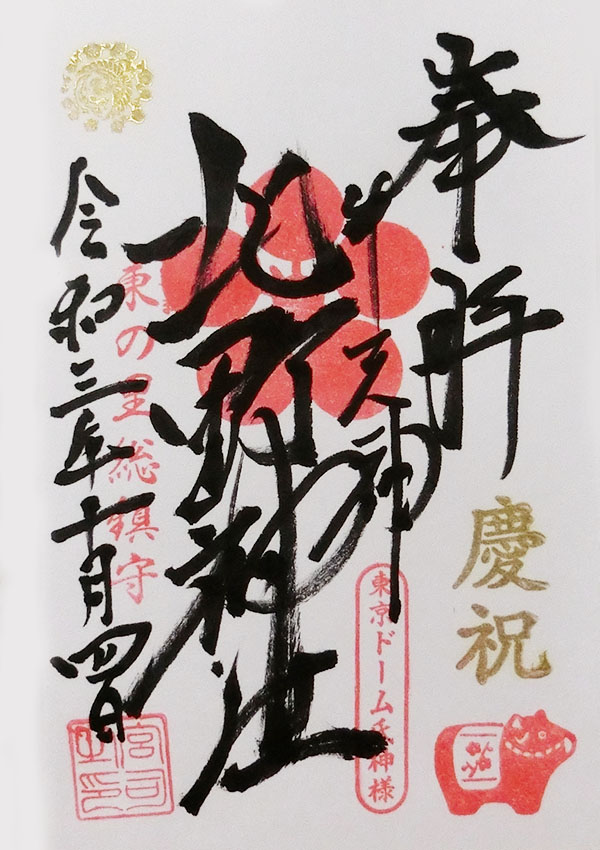 奉拝
慶祝
牛天神
東京ドーム氏神様
北野神社
東の里総鎮守
令和三年十月四日
宮司之印